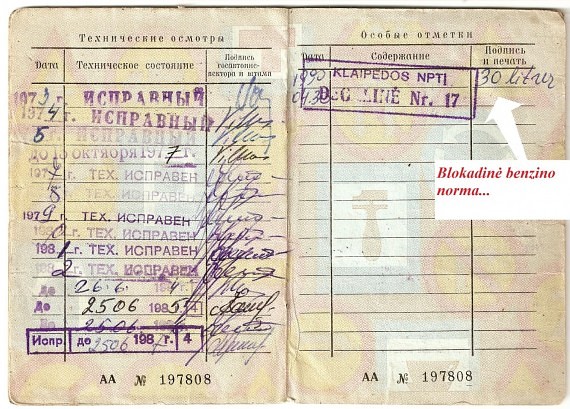 Технические осмотры
Дата
Техническое состояние
Подпись
госавтоинс-
пектора и штамп
1973 г. ИСПРАВНЫЙ
1974 г. ИСПРАВНЫЙ
5 ИСПРАВНЫЙ
до 15 октября 1977 г.
ТЕХ. ИСПРАВЕН
ТЕХ. ИСПРАВЕН
1979 г. ТЕХ. ИСПРАВЕН
0 г. ТЕХ. ИСПРАВЕН
1981 г. ТЕХ. ИСПРАВЕН
2 г. ТЕХ. ИСПРАВЕН
до 26.6. 4
До 2506 1985 г.
до 2506
Испр. до 2506 198 г. 4
АА № 197808
Особые отметки
Дата
Содержание
Подпись
и печать
1990
KLAIPĖDOS NPTĮ
DEGALINĖ Nr. 17
30 litrų
Blokadinė benzino
norma...
АА № 197808